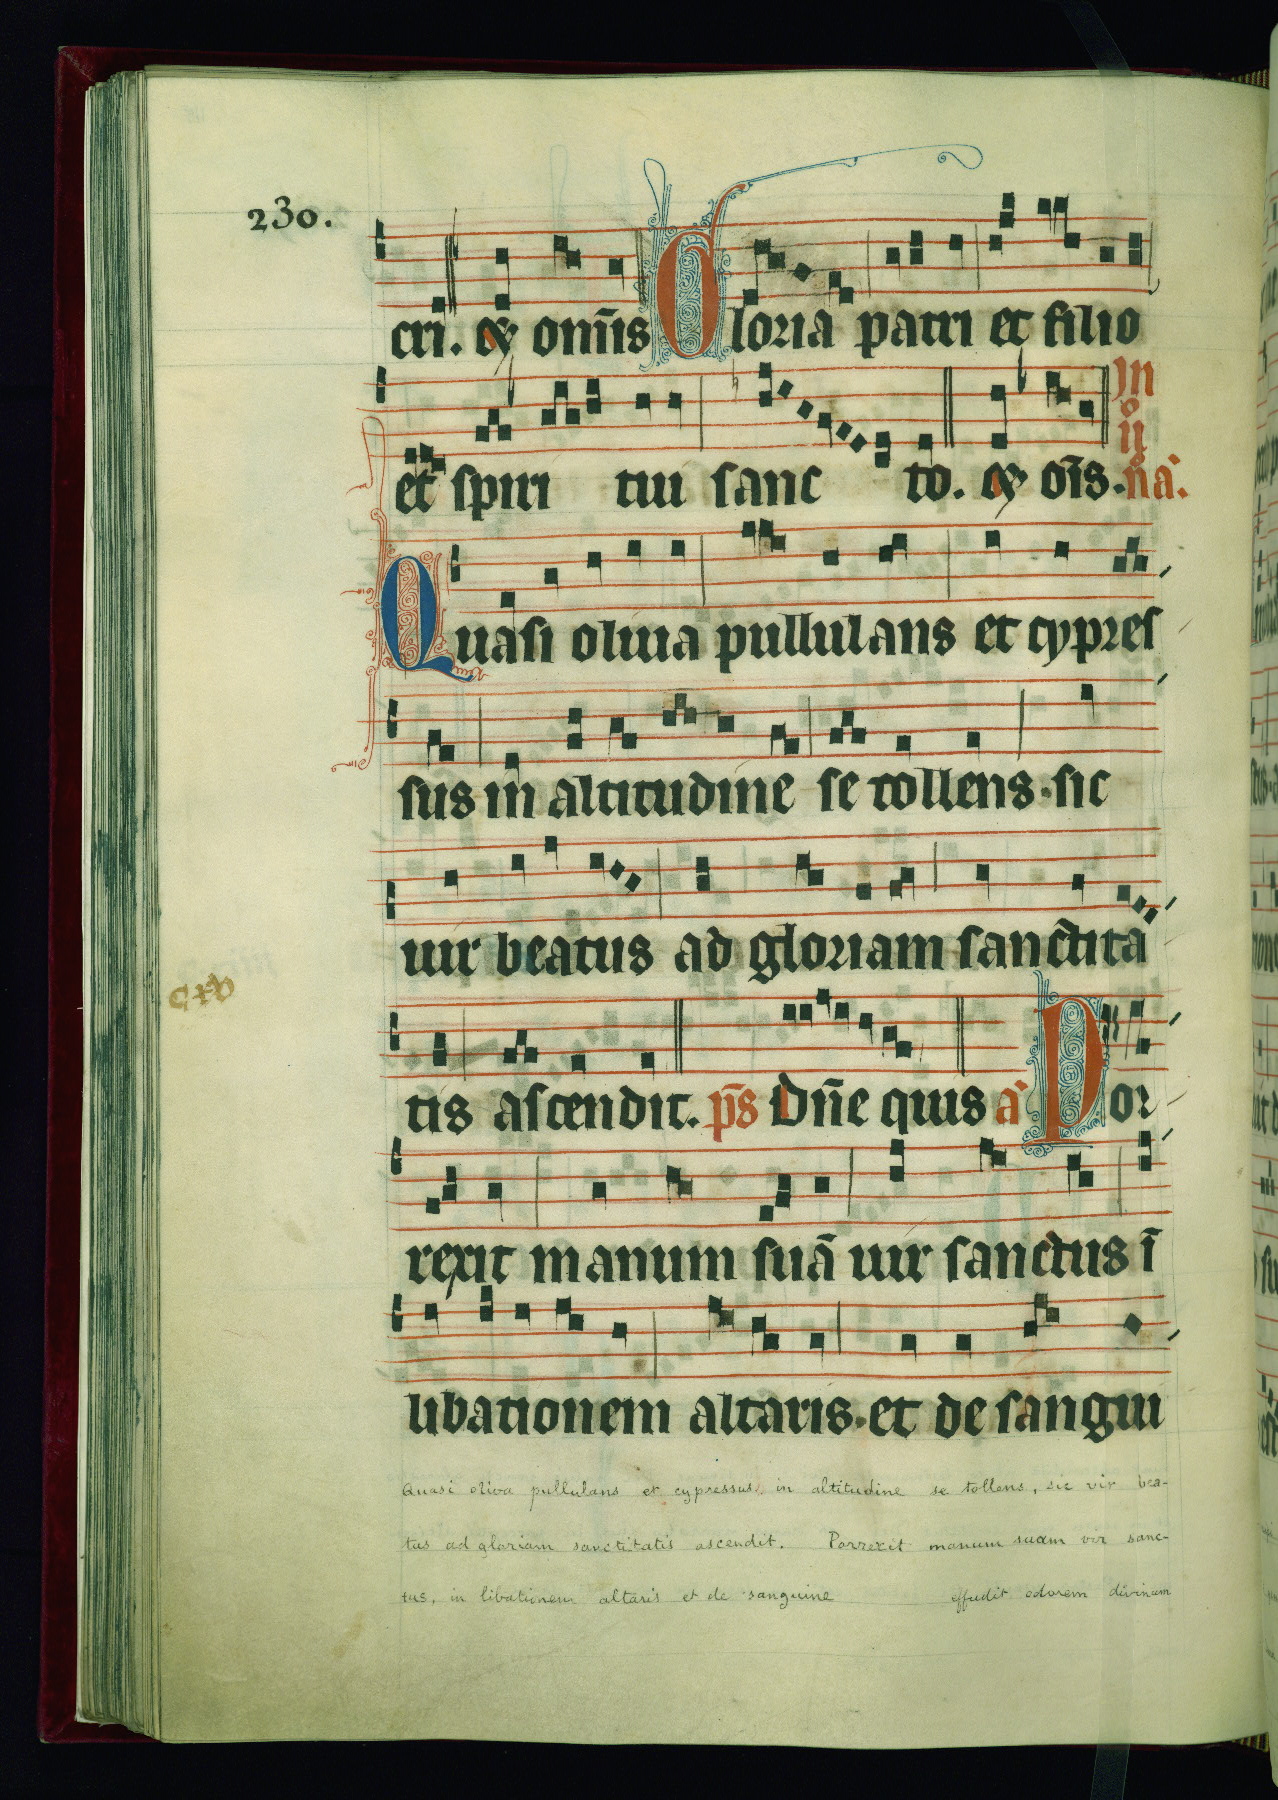 230.
cri. ex om̄is Gloria patri et filio
et spiri tui sanc to. ex oīs. Jn
ij
nā.
Quasi oliua pullulans et cypres
sus in altitudine se tollens. sic
uir beatus ad gloriam sanctita
tis ascendit. ps̄ Dn̄e quis a Por
rexit manum suā uir sanctus ī
libationem altaris. et de sangui
Quasi oliva pullulans et cypressus in altitudine se tollens, sic vir bea-
tus ad gloriam sanctitatis ascendit. Porrexit manum suam vir sanc-
tus, in libationem altaris et de sanguine effudit odorem divinum